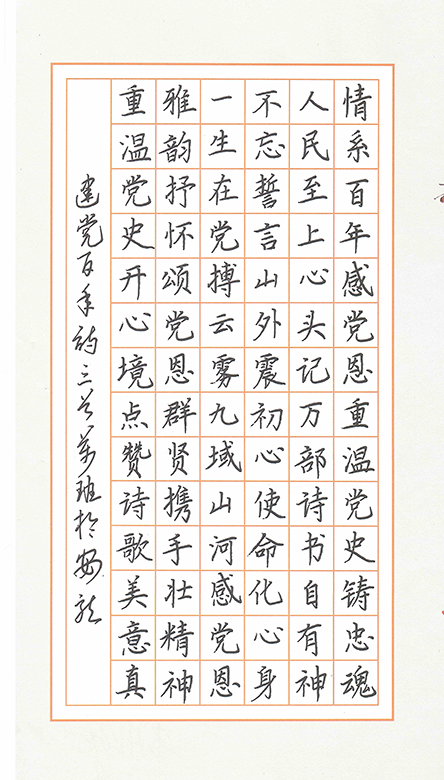 情系百年感党恩重温党史铸忠魂
人民至上心头记万部诗书自有神
不忘誓言山外震初心使命化心身
一生在党搏云雾九域山河感党恩
雅韵抒怀颂党恩群贤携手壮精神
重温党史开心境点赞诗歌美意真
建党百年诗三首 班于安龙